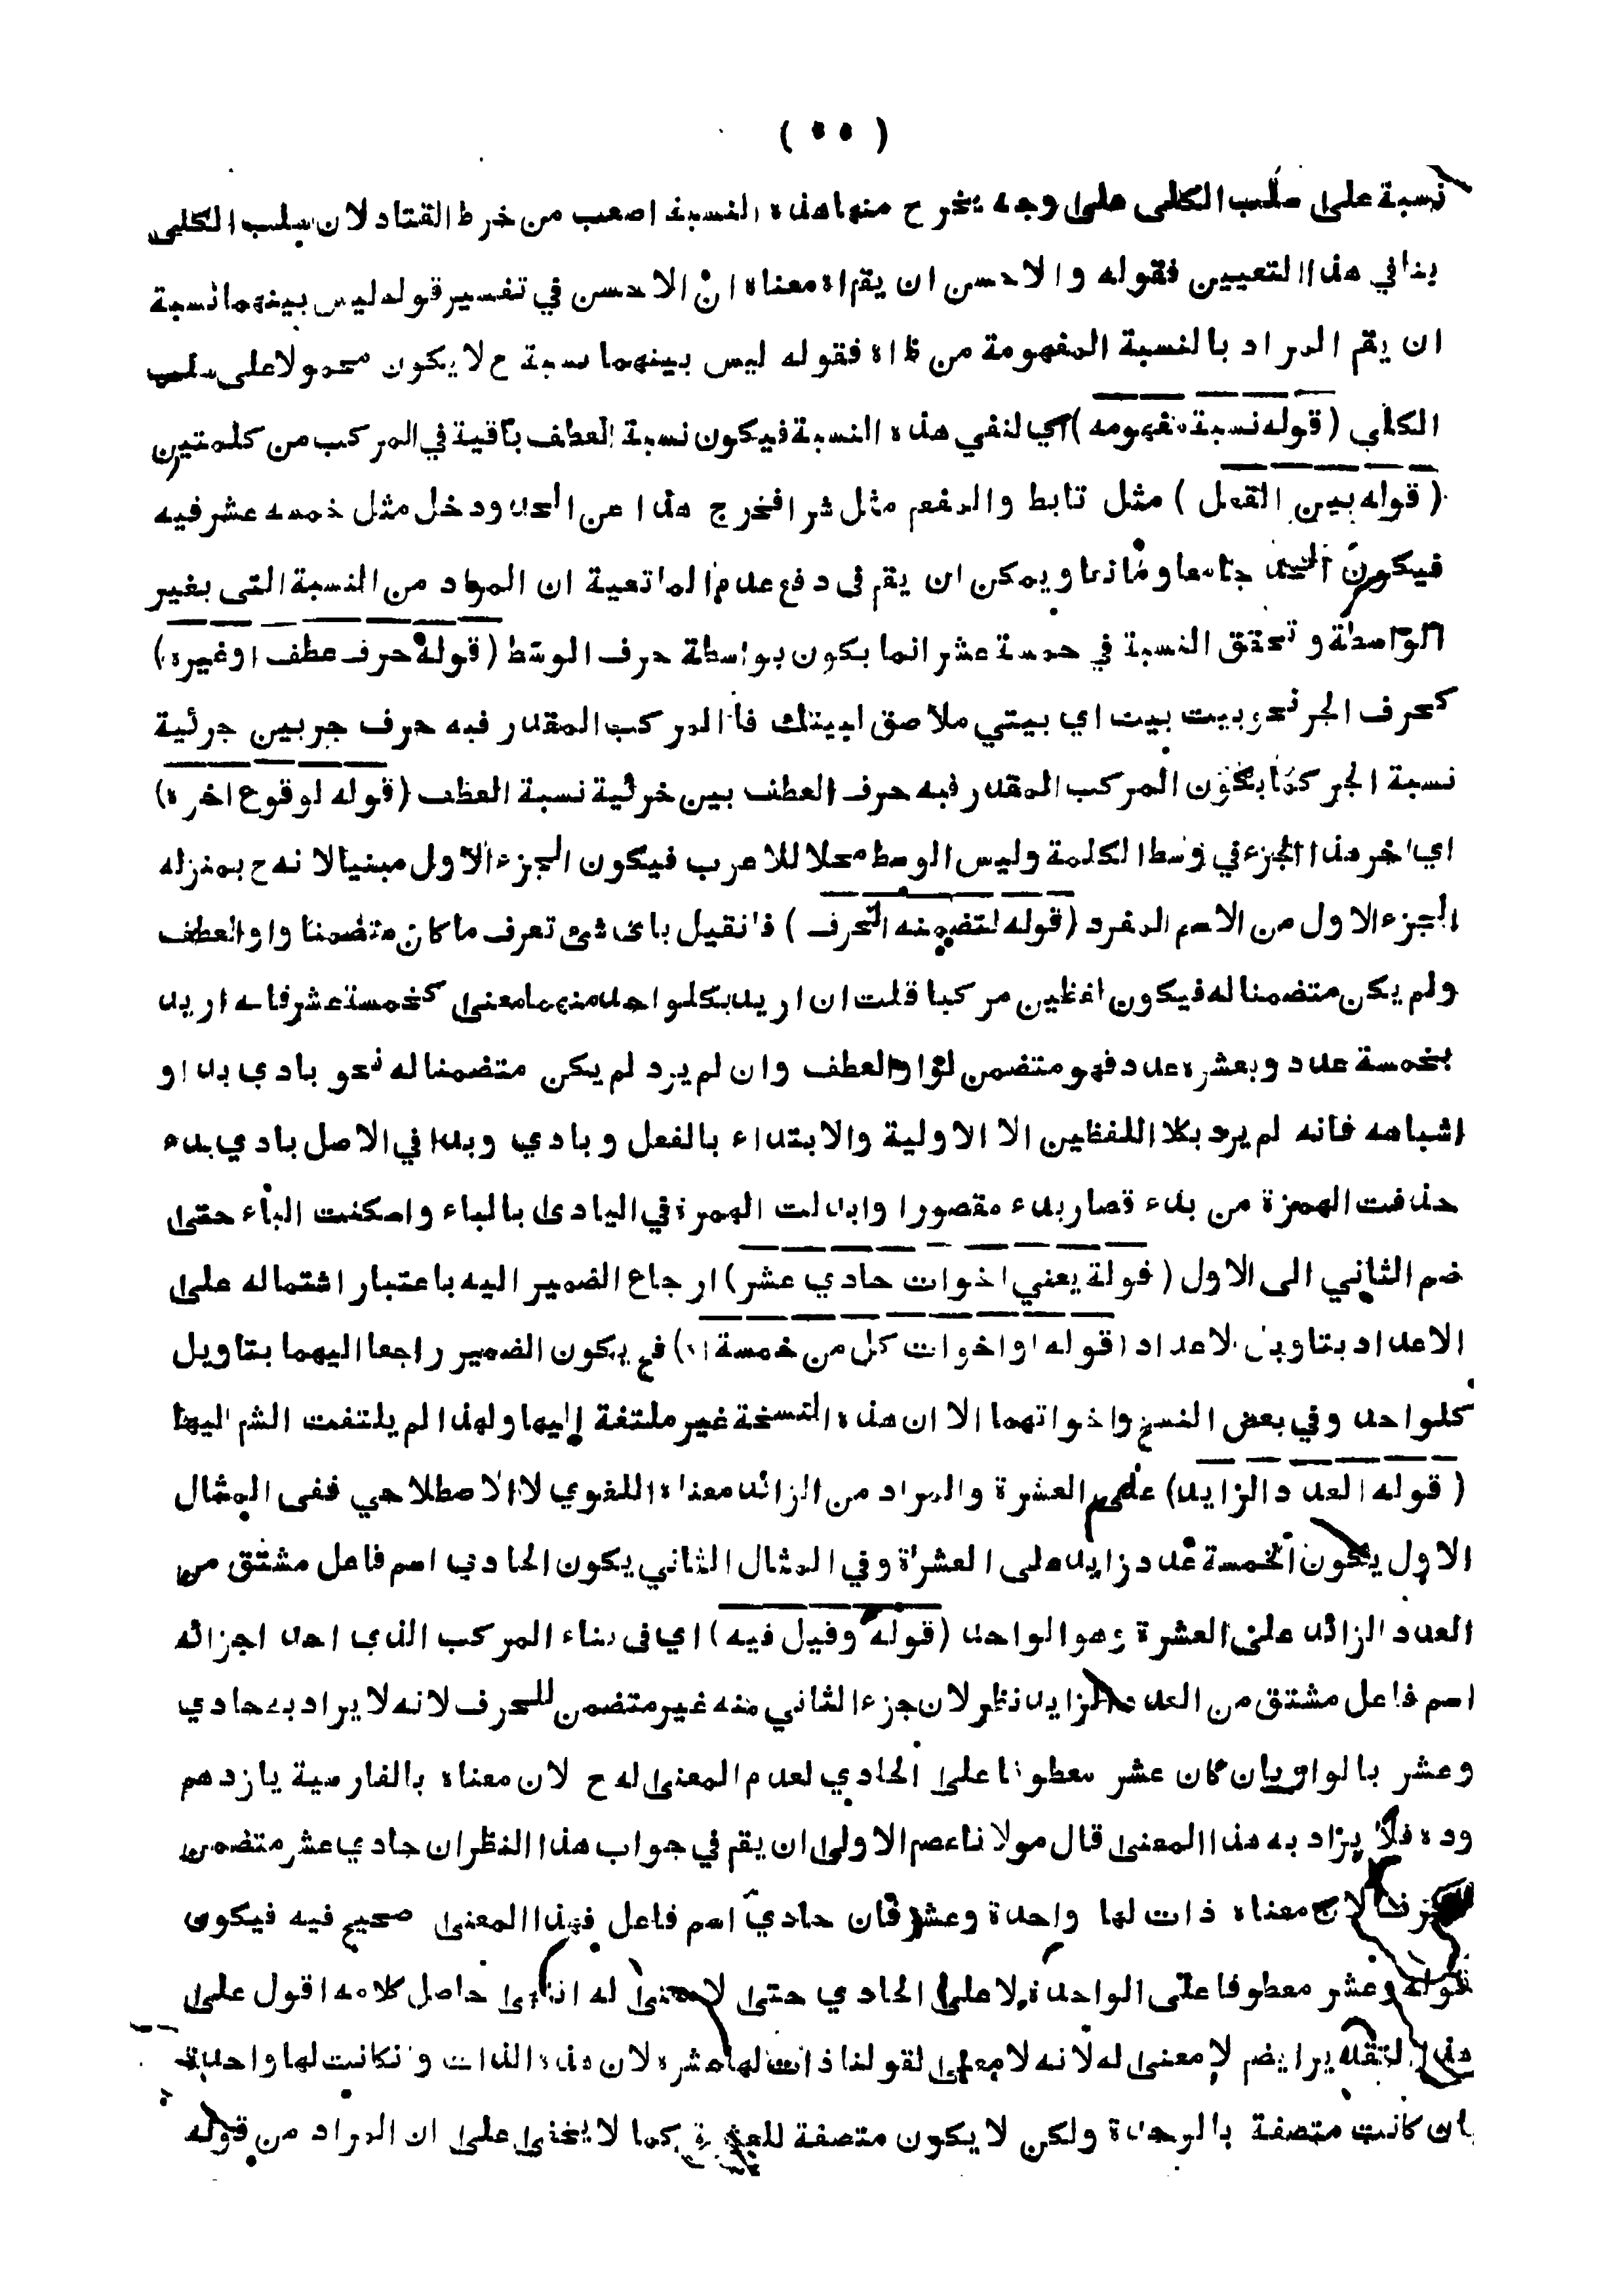 ( ٥٥ )
نسبة على سلب الكلى على وجه يخرج منها هذه النسبة اصعب من خرط القتاد لان سلب الكلى
ينافي هذا التعيين فقوله والاحسن ان يقم اه معناه ان الاحسن في تفسير قوله ليس بينهما نسبة
ان يقم المراد بالنسبة المفهومة من ظ اه فقوله ليس بينهما نسبة ح لا يكون محمولا على سلب
الكلى (قوله نسبة مفهومه) اى لنفي هذه النسبة فيكون نسبة العطف باقية في المركب من كلمتين
(قوله بين الفعل) مثل تابط والمفعم مثل شرا فخرج هذا عن الحد ودخل مثل خمسه عشر فيه
فيكون الحد جامعا ومانعا ويمكن ان يقم فى دفع عدم الما تعية ان المراد من النسبة التى بغير
الواسطة وتحقق النسبة في خمسة عشر انما يكون بواسطة حرف الوسط (قوله حرف عطف اوغيره)
كحرف الجر نحو بيت بيت اي بيتي ملاصق لبيتك فا المركب المقدر فيه حرف جر بين جزئية
نسبة الجر كما يكون المركب المقدر فيه حرف العطف بين جزئية نسبة العطف (قوله لوقوع اخره)
اي اخر هذا الجزء في وسط الكلمة وليس الوسط محلا للاعرب فيكون الجزء الاول مبنيا لانه ح بمنزله
الجزء الاول من الاسم المفرد (قوله لتضمنه الحرف) فانقيل باى شئ تعرف ما كان متضمنا واو العطف
ولم يكن متضمنا له فيكون لفظين مركبا قلت ان اريد بكلواحد منهما معنى كخمسة عشر فانه اريد
بخمسة عدد وبعشره عدد فهو متضمن لواو العطف وان لم يرد لم يكن متضمنا له نحو بادي بدا و
اشباهه فانه لم يرد بكلا اللفظين الا الاولية والابتداء بالفعل وبادي وبدا في الاصل بادي بدء
حذفت الهمزة من بدء فصار بدء مقصورا وابدلت الهمزة في البادى بالياء واسكنت الياء حتى
ضم الثاني الى الاول (قولة يعني اخوات حادي عشر) ارجاع الضمير اليه باعتبار اشتماله على
الاعداد بتاويل الاعداد (قوله او اخوات كل من خمسة اه) فح يكون الضمير راجعا اليهما بتاويل
كلواحد وفي بعض النسخ واخواتهما الا ان هذه النسخة غير ملتفة اليها ولهذا لم يلتفت الشم اليها
(قوله العدد الزايد) على العشرة والمراد من الزائد معناه اللغوي لا الاصطلاحي ففى المثال
الاول يكون الخمسة عدد زايد على العشرة وفي المثال الثاني يكون الحادي اسم فاعل مشتق من
العدد الزائد على العشرة وهو الواحد (قوله وقيل فيه) اي فى بناء المركب الذي احد اجزائه
اسم فاعل مشتق من العدد الزايد نظر لان جزء الثاني منه غير متضمن للحرف لانه لا يراد به حادي
وعشر بالواو بان كان عشر معطوفا على الحادي لعدم المعنى له ح لان معناه بالفارسية يازدهم
وده فلا يراد به هذا المعنى قال مولانا عصم الاولى ان يقم في جواب هذا النظر ان حادي عشر متضمن
لان معناه ذات لها واحدة وعشر فان حادي اسم فاعل فهذا المعنى صحيح فيه فيكون
قوله وعشر معطوفا على الواحدة لا على الحادي حتى لا معنى له انتهى حاصل كلامه اقول على
هذا التقدير ايضم لا معنى له لانه لا معنى لقولنا ذات لها عشره لان هذه الذات وانكانت لها واحدة
بان كانت متصفة بالوحدة ولكن لا يكون متصفة كما لا يخفى على ان المراد من قوله